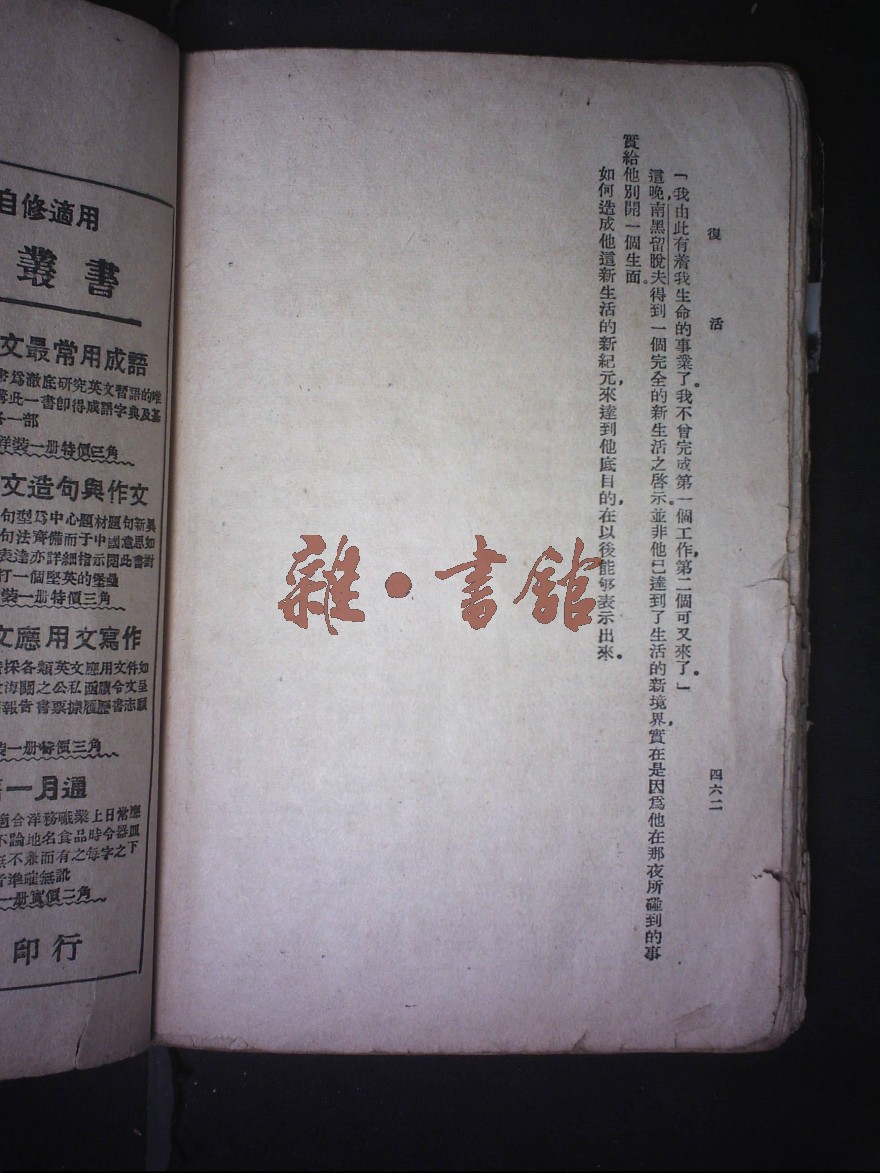 復活
「我由此有着我生命的事業了。我不曾完成第一個工作，第二個可又來了。」
這晚，南黑留脫夫得到一個完全的新生活之啓示。並非他已達到了生活的新境界，實在是因爲他在那夜所碰到的事
實給他別開一個生面。
如何造成他這新生活的新紀元，來達到他底目的，在以後能够表示出來。
四六二
雜·書館
自修適用
叢書
文最常用成語
書爲澈底研究英文習語的唯
此一書卽得成語字典及
一部
洋裝一册特價三角
文造句與作文
句型爲中心題材題句新異
句法齊備而于中國意思如
表達亦詳細指示閱此書對
打一個堅英的堡壘
裝一册特價三角
文應用文寫作
採各類英文應用文件如
海關之公私函牘令文呈
報告書票據履歷書志願
裝一册特價三角
一月通
適合洋務職業上日常應
不論地名食品時令器皿
無不兼而有之每字之下
音準確無訛
一册實價二角
印行